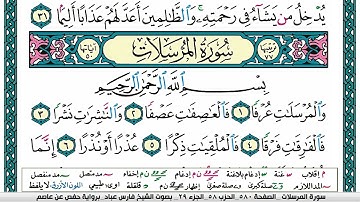 يُدْخِلُ مَن يَشَآءُ فِى رَحْمَتِهِۦ ۚ وَٱلظَّٰلِمِينَ أَعَدَّ لَهُمْ عَذَابًا أَلِيمًۢا ٣١
سُورَةُ المُرْسَلَاتِ
بِسْمِ ٱللَّهِ ٱلرَّحْمَٰنِ ٱلرَّحِيمِ
وَٱلْمُرْسَلَٰتِ عُرْفًا ١ فَٱلْعَٰصِفَٰتِ عَصْفًا ٢ وَٱلنَّٰشِرَٰتِ نَشْرًا ٣
فَٱلْفَٰرِقَٰتِ فَرْقًا ٤ فَٱلْمُلْقِيَٰتِ ذِكْرًا ٥ عُذْرًا أَوْ نُذْرًا ٦ إِنَّمَا
سورة المرسلات الصفحة ٥٨٠ الحزب ٥٨ الجزء ٢٩ بصوت الشيخ فارس عباد برواية حفص عن عاصم